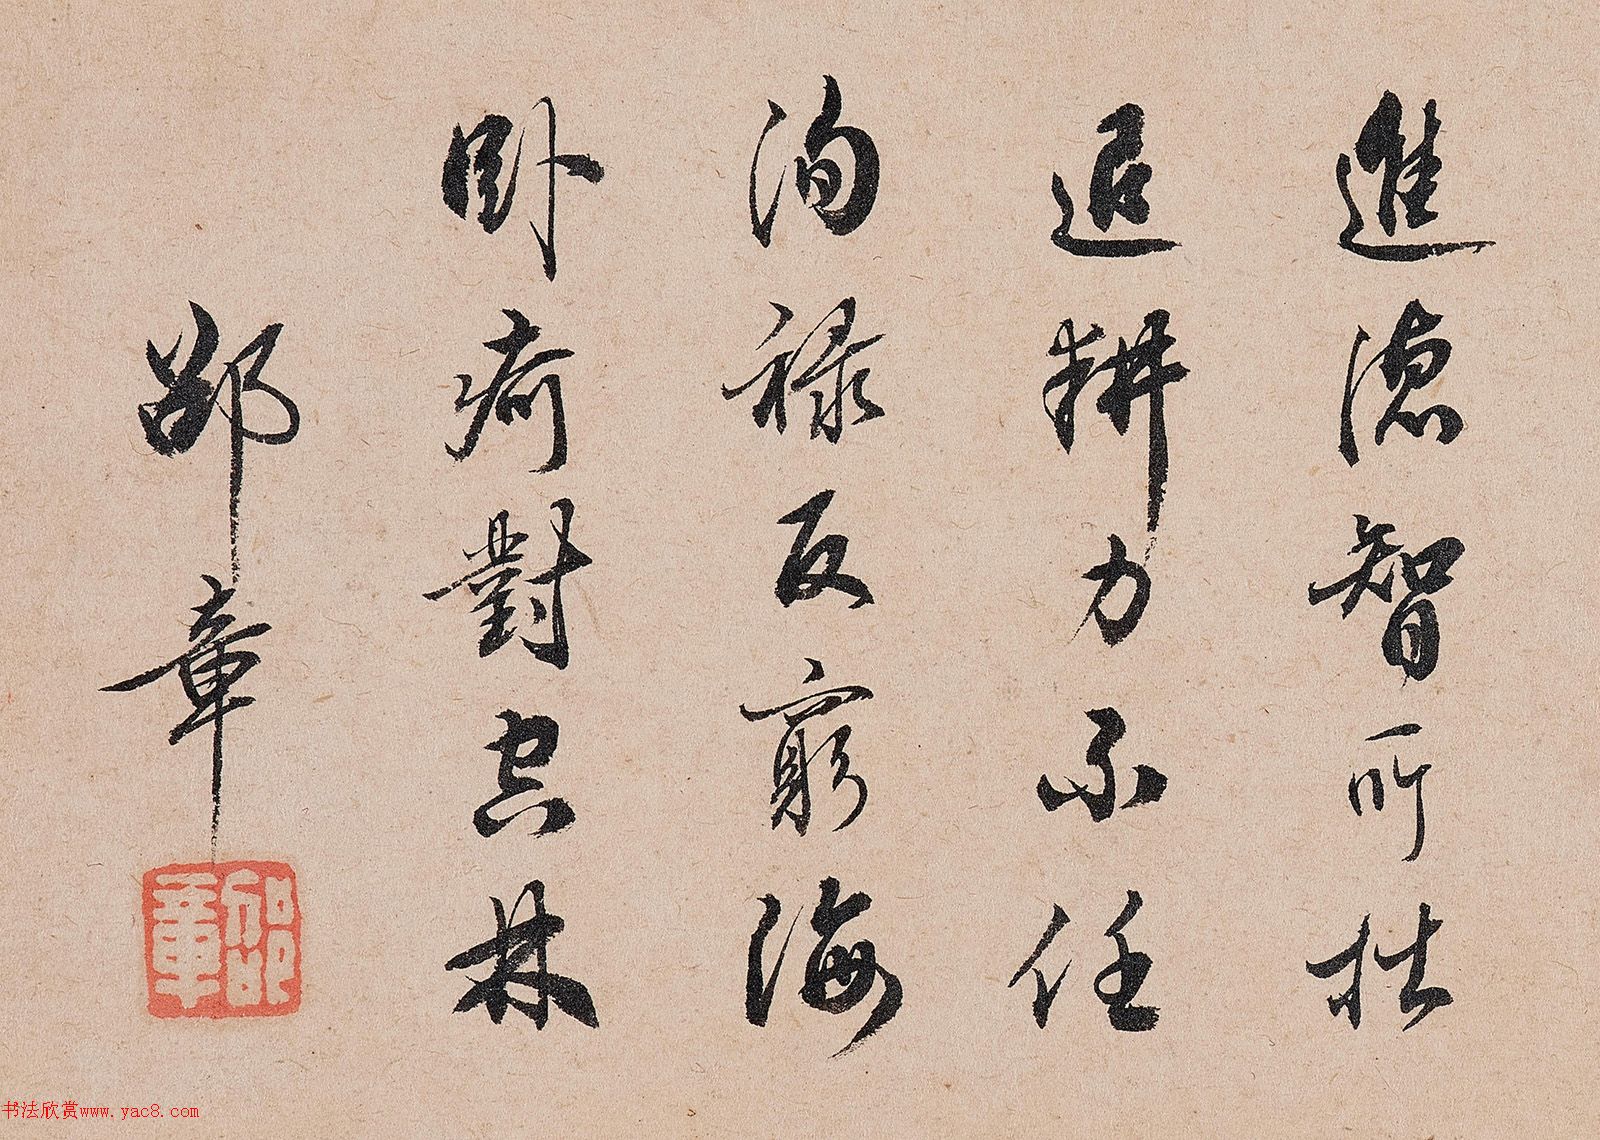 進德智所拙
退耕力不任
徇祿反窮海
卧痾對空林
邵章
邵章
书法欣赏www.yac8.com